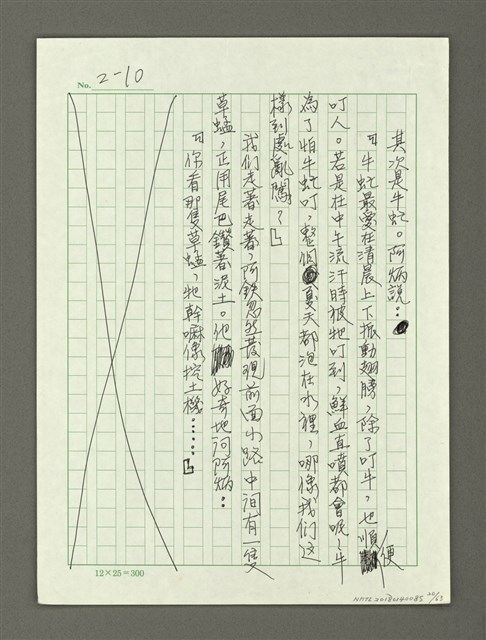 No. 2-10
其次是牛虻。阿炳說：
「牛虻最愛在清晨上下振動翅膀，除了叮牛，也順便
叮人。若是在中午流汗時被牠叮到，鮮血直噴都會呢！牛
為了怕牛虻叮，整個夏天都泡在水裡，哪像我们这
樣到處亂闖？」
我们走著走著，阿欽忽然發現前面小路中间有一隻
草蜢，正用尾巴鑽著泥土。他好奇地问阿炳：
「你看那隻草蜢，牠幹嘛像挖土機……」
12×25=300
NMTL20180140085 20/69